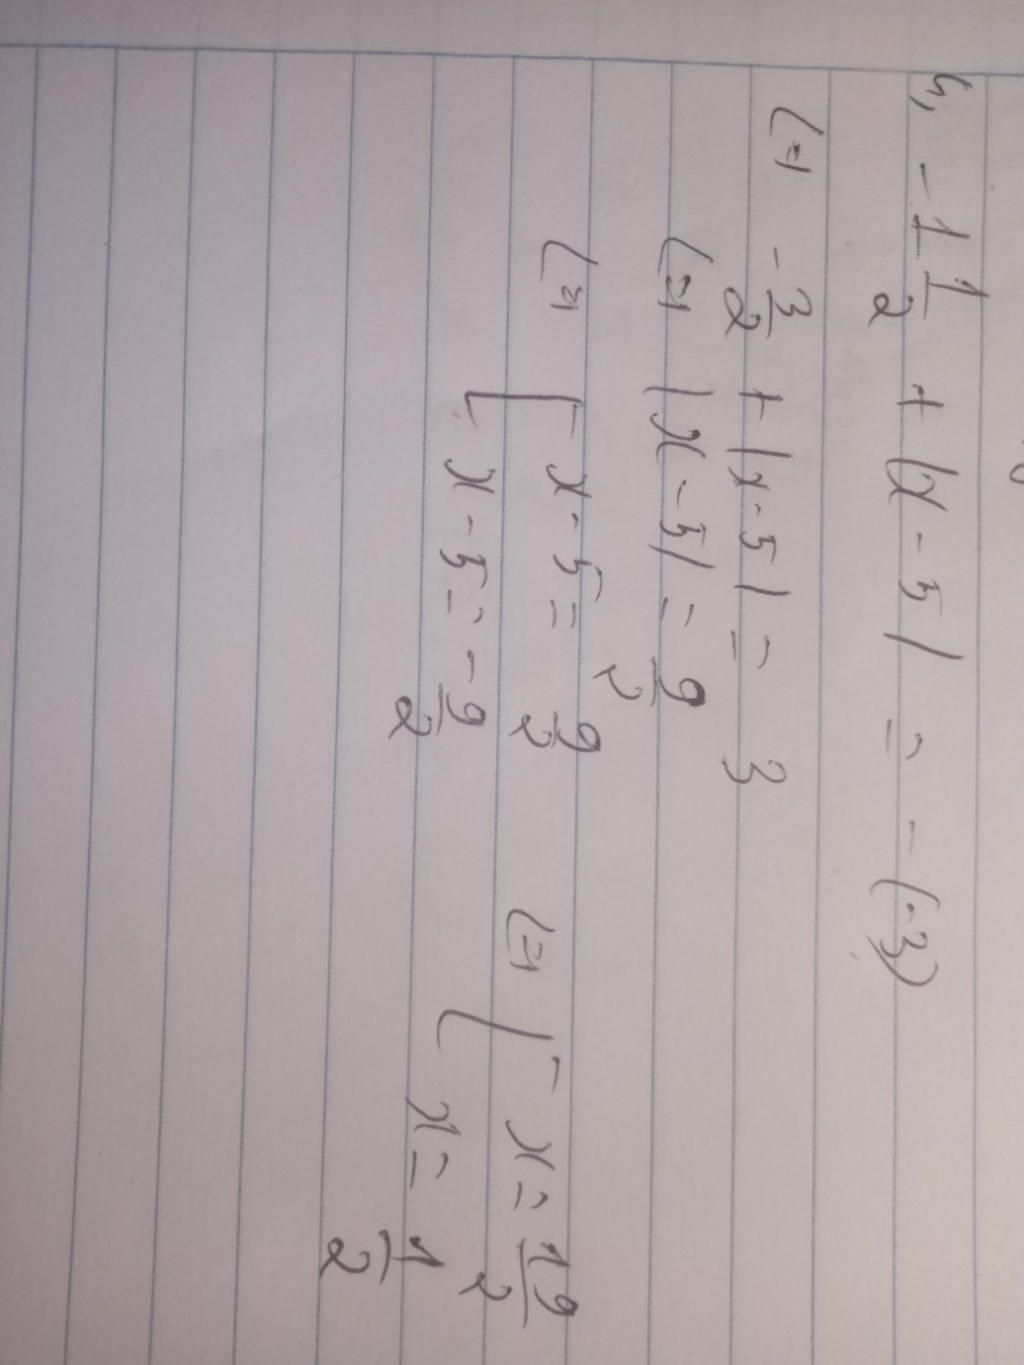 h, -1 1/2 + |x - 5| = -(-3)
<=> -3/2 + |x - 5| = 3
<=> |x - 5| = 9/2
<=> [ x - 5 = 9/2 <=> [ x = 19/2
x - 5 = -9/2 x = 1/2